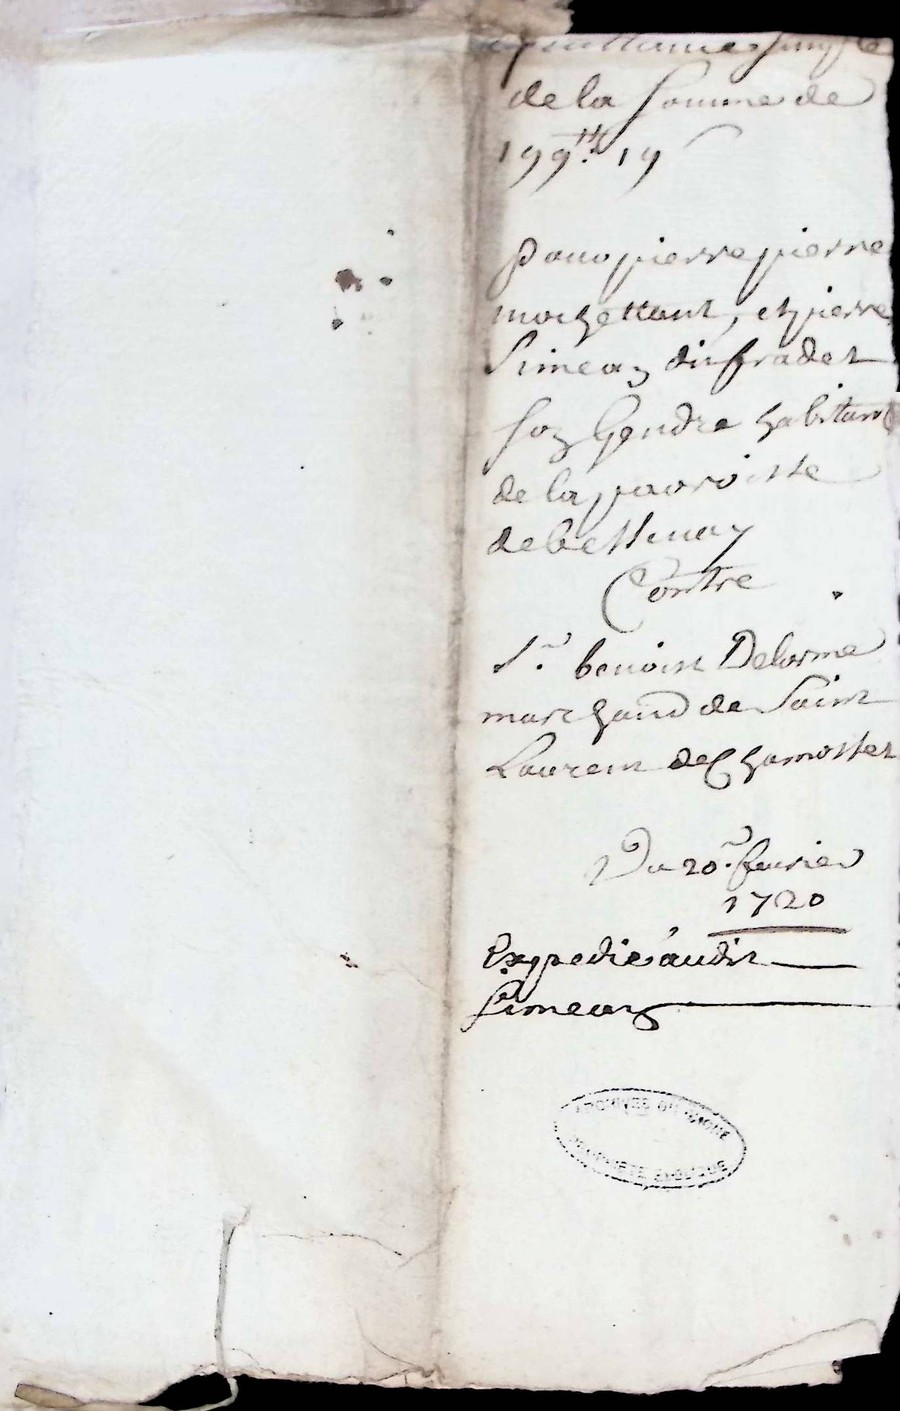 quittance simple
de la somme de
199ᵗᵗ 19 s
pour pierre pierre
mochettant, et pierre
Simean dit fradet
son gendre habitant
de la parroisse
de bessenay
Contre
Sʳ. benoist Delorme
marchand de Saint
Laurent de Chamosset
Du 20ᵉ. feurier
1720
Expedié audit
Simean
ARCHIVES DU RHONE
PROPRIETE PUBLIQUE